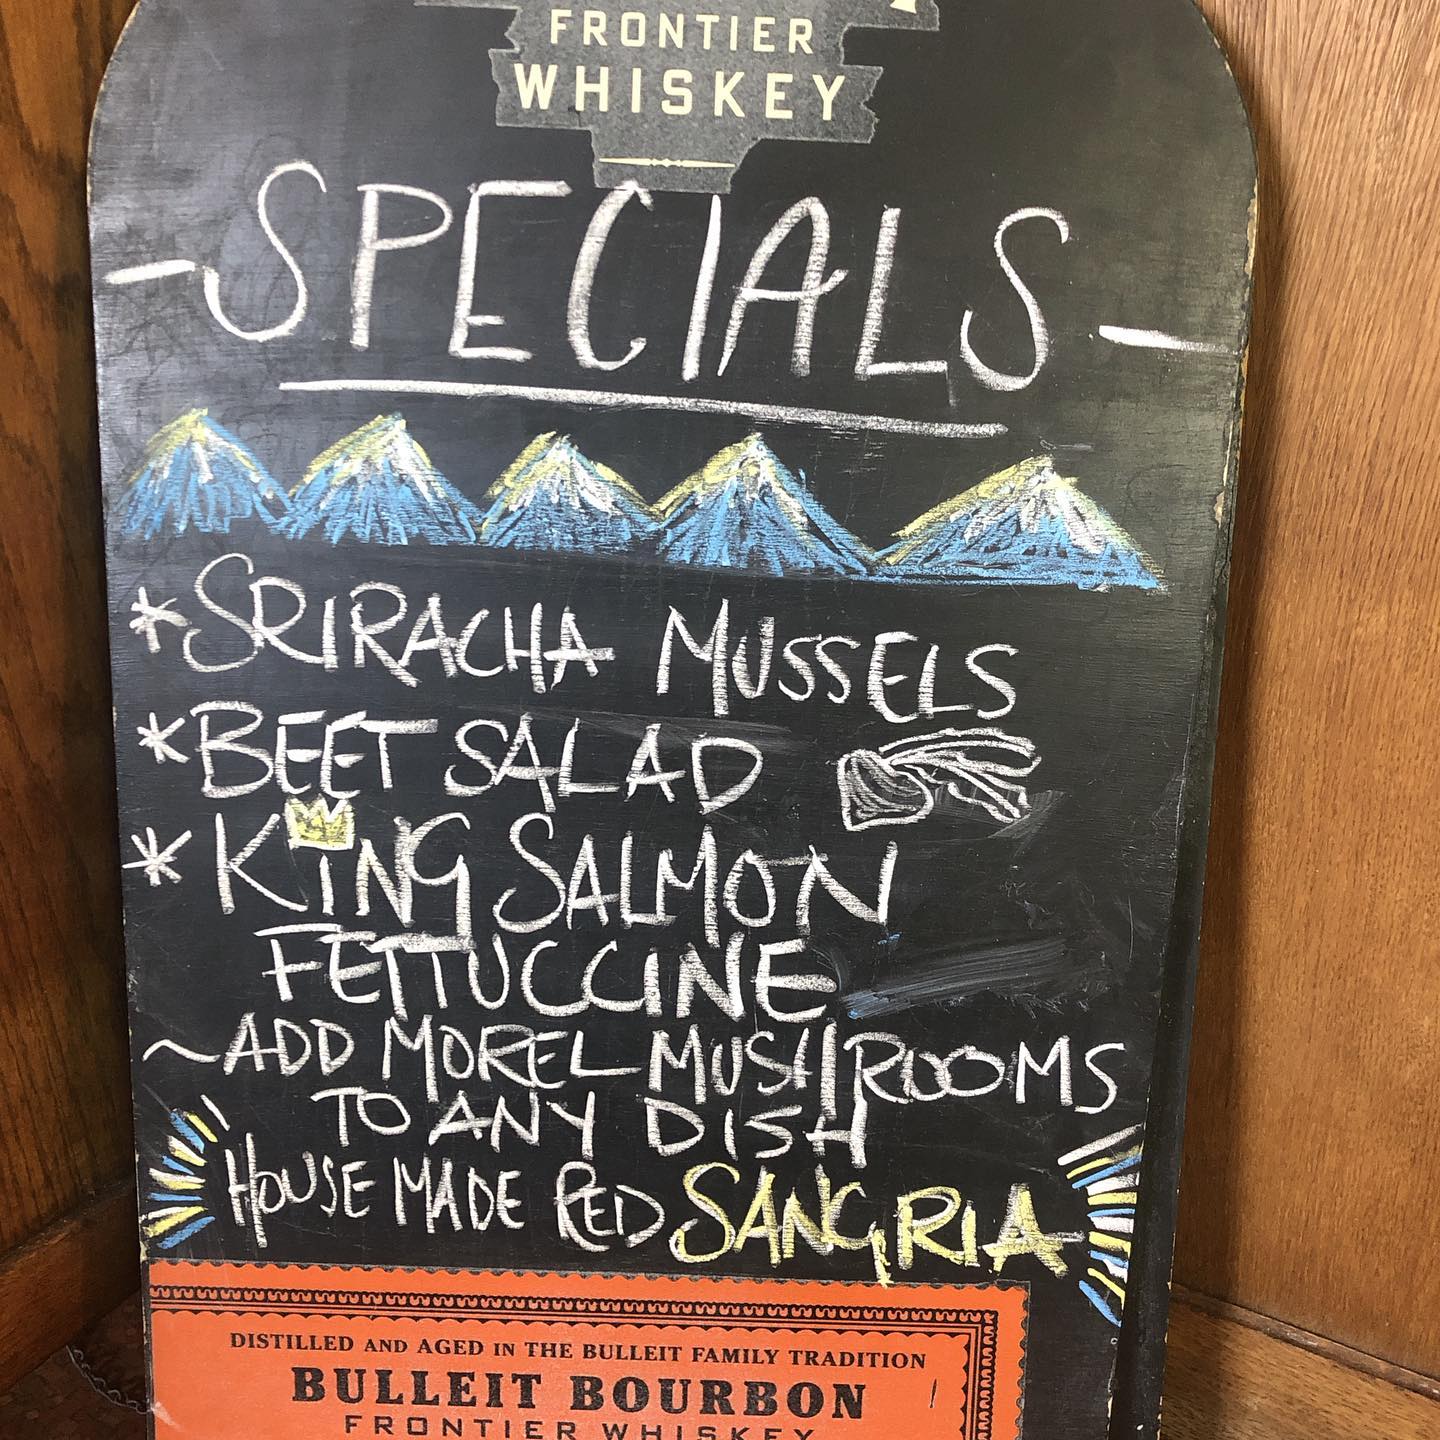 FRONTIER
WHISKEY
-SPECIALS-
*SRIRACHA MUSSELS
*BEET SALAD
*KING SALMON
FETTUCCINE
~ADD MOREL MUSHROOMS
TO ANY DISH
HOUSE MADE RED SANGRIA
DISTILLED AND AGED IN THE BULLEIT FAMILY TRADITION
BULLEIT BOURBON
FRONTIER WHISKEY